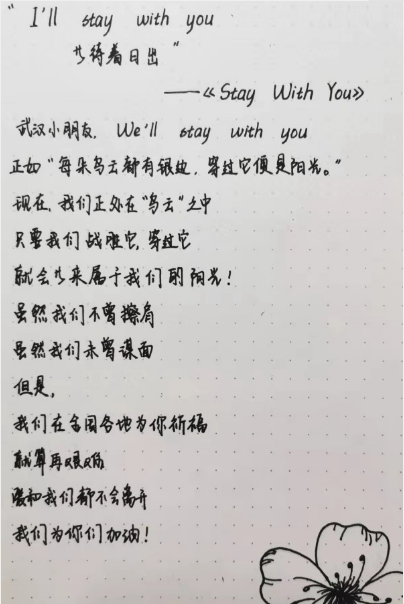 "I'll stay with you
共待着日出"
——《Stay With You》
武汉小朋友, We'll stay with you
正如"每朵乌云都有银边，穿过它便是阳光。"
现在，我们正处在"乌云"之中
只要我们战胜它，穿过它
就会共来属于我们的阳光！
虽然我们不曾擦肩
虽然我们未曾谋面
但是，
我们在全国各地为你祈福
就算再艰难
爱和我们都不会离开
我们为你们加油！